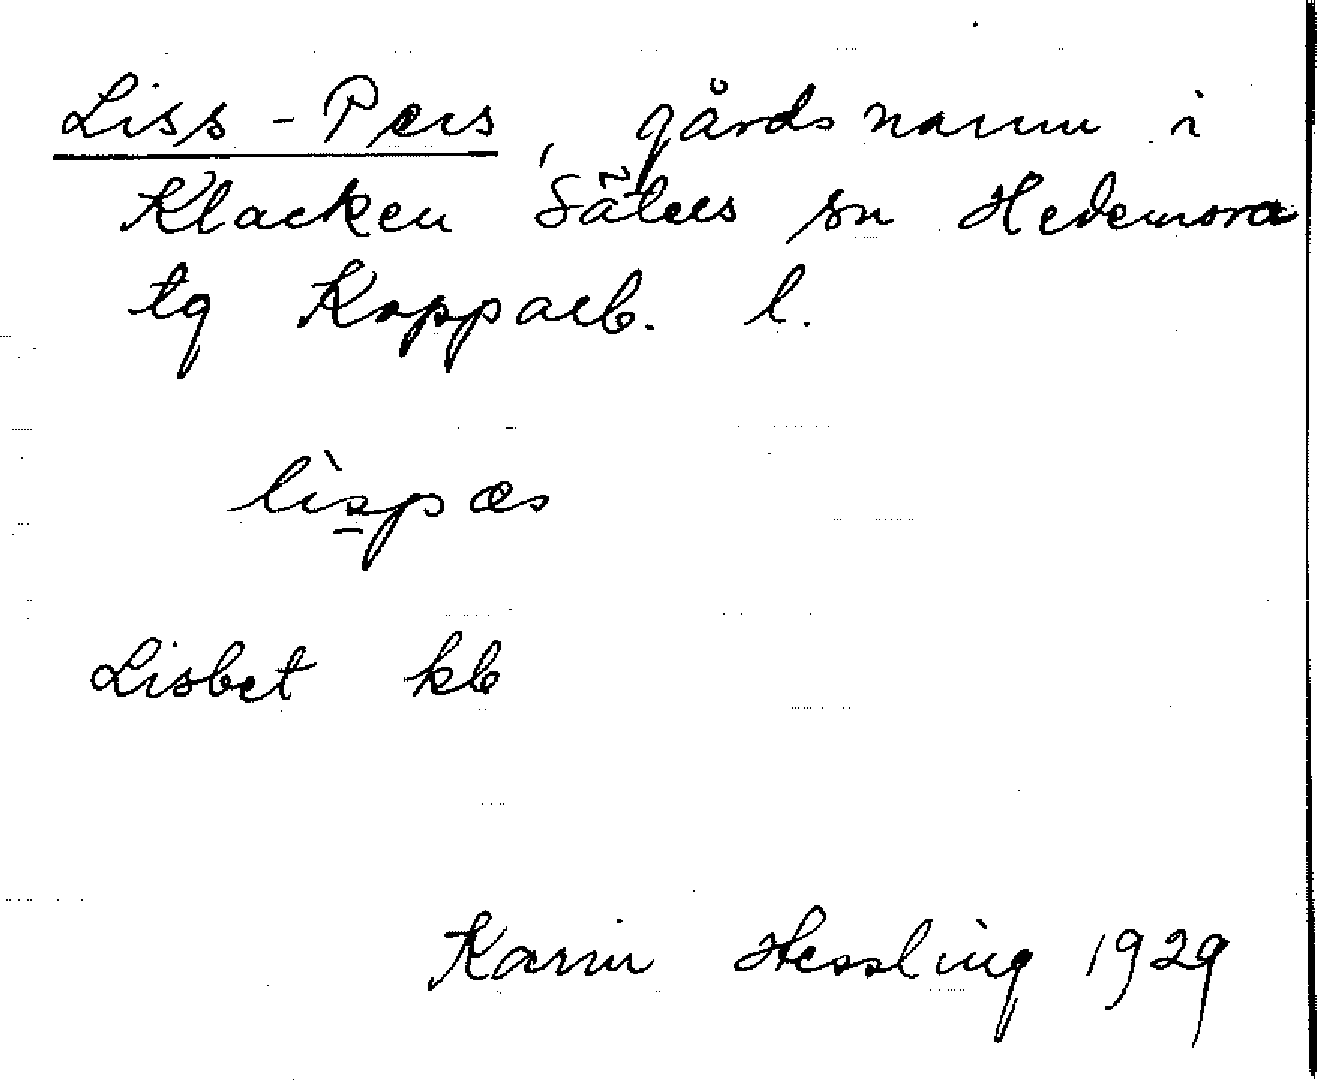 Liss-Pers, gårdsnamn i
Klacken Säters sn Hedemora
tg Kopparb. l.
lìspæs
Lisbet kb
Karin Hessling 1929